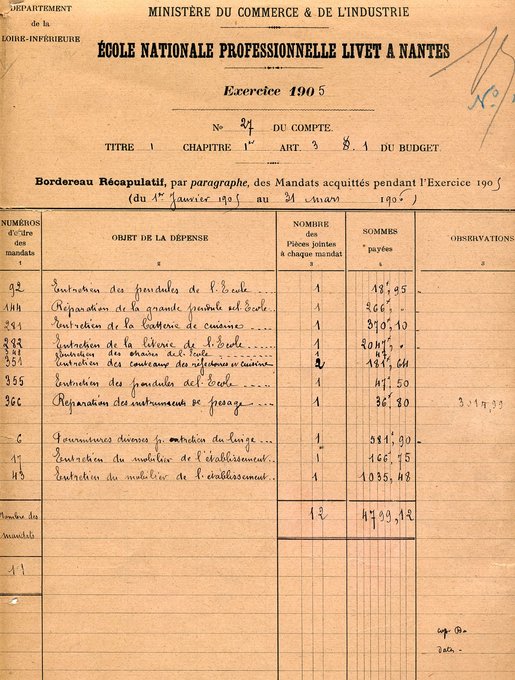 DÉPARTEMENT
de la
LOIRE-INFÉRIEURE
MINISTÈRE DU COMMERCE & DE L'INDUSTRIE
ÉCOLE NATIONALE PROFESSIONNELLE LIVET A NANTES
Exercice 1905
No
No 27 DU COMPTE.
TITRE 1 CHAPITRE 1er ART. 3 §. 1 DU BUDGET.
Bordereau Récapitulatif, par paragraphe, des Mandats acquittés pendant l'Exercice 1905
(du 1er Janvier 1905 au 31 mars 1906)
NUMÉROS d'ordre des mandats
OBJET DE LA DÉPENSE
NOMBRE des Pièces jointes à chaque mandat
SOMMES payées
OBSERVATIONS
1 2 3 4 5
92 Entretien des pendules de l'Ecole .... 1 18f,95
144 Réparation de la grande pendule de l'Ecole.. 1 266, "
281 Entretien de la batterie de cuisine .... 1 370,10
282 Entretien de la literie de l'Ecole .... 1 2047, "
341 Entretien des chaises de l'Ecole ........ 1 47,
351 Entretien des couteaux des réfectoires et cuisine 2 181,64
355 Entretien des pendules de l'Ecole .... 1 47,50
366 Réparation des instruments de pesage ... 1 36,80
6 Fournitures diverses p. entretien du linge ... 1 581,90
17 Entretien du mobilier de l'établissement.... 1 166,75
43 Entretien du mobilier de l'établissement.... 1 1035,48
Nombre des mandats
12 4799,12
11